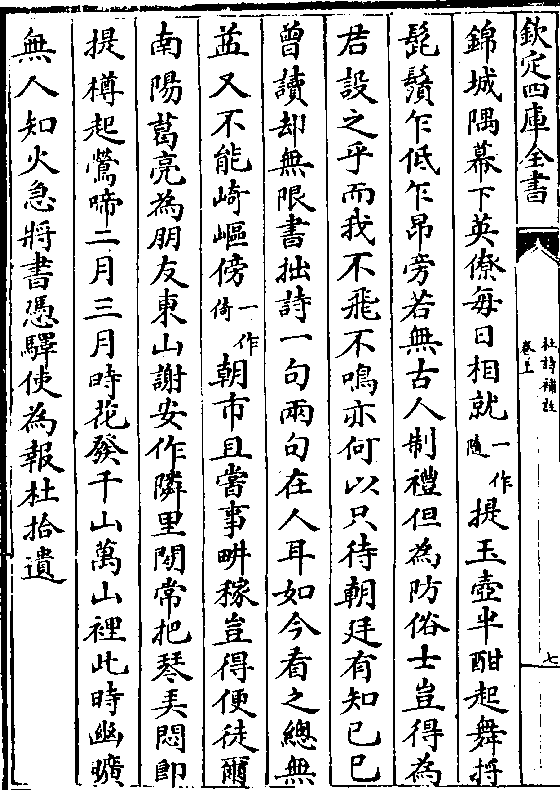 欽定四庫全書
杜詩補註
卷上
七
錦城隅幕下英僚每日相就一作隨提玉壺半酣起舞捋
髭鬚乍低乍昂旁若無古人制禮但為防俗士豈得為
君設之乎而我不飛不鳴亦何以只待朝廷有知已已
曾讀却無限書拙詩一句兩句在人耳如今看之總無
益又不能崎嶇傍一作倚朝市且當事畊稼豈得便徒爾
南陽葛亮為朋友東山謝安作隣里閒常把琴弄悶即
提樽起鶯啼二月三月時花發千山萬山裡此時幽曠
無人知火急將書憑驛使為報杜拾遺